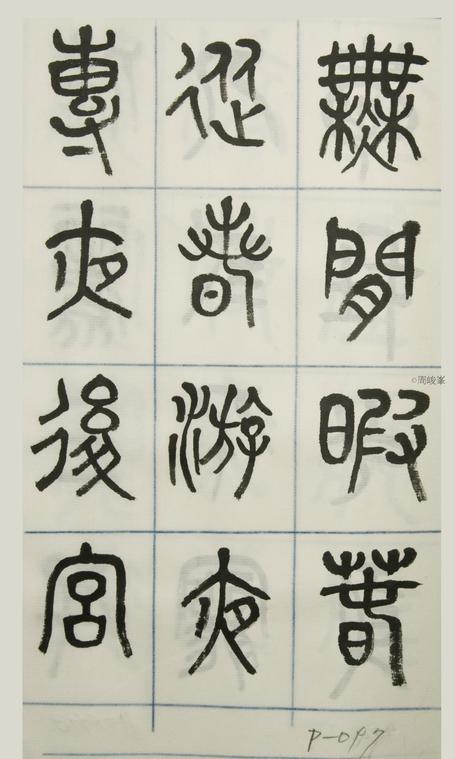 無閒暇春
從春游夜
專夜後宮
P-097
©周峻峯